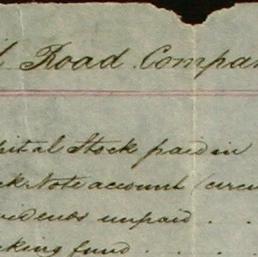 l Road Compan
pital Stock paid in
ck Note account (circu
vidends unpaid . .
king fund . . . . .